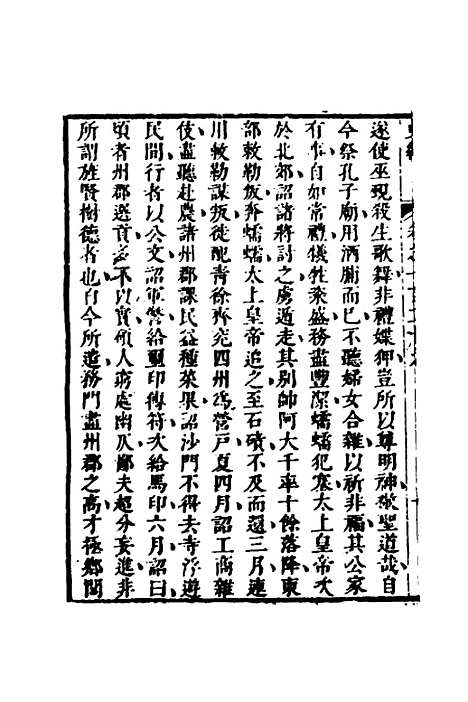 遂使巫覡殺生歌舞非禮媟狎豈所以尊明神敬聖道哉自
今祭孔子廟用酒脯而已不聽婦女合雜以祈非福其公家
有事自如常禮犧牲粢盛務盡豐潔蠕蠕犯塞太上皇帝次
於北郊詔諸將討之虜遁走其別帥阿大千率十餘落降東
部敕勒叛奔蠕蠕太上皇帝追之至石磧不及而還三月連
川敕勒謀叛徙配青徐齊兖四州爲營戶夏四月詔工商雜
伎盡聽赴農諸州郡課民益種菜果詔沙門不得去寺浮遊
民間行者以公文詔軍警給璽印傳符次給馬印六月詔曰
頃者州郡選貢多不以實碩人窮處幽仄鄙夫超分妄進非
所謂旌賢樹德者也自今所遣務門盡州郡之高才極鄉閭